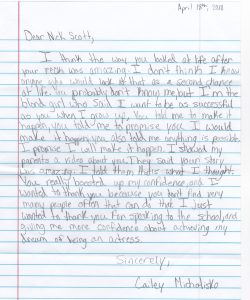 April 18th, 2018
Dear Nick Scott,
I think the way you looked at life after
your was amazing. I don't think I know
anyone who would look at that as a second chance
at life. You probably don't know me, but I'm the
blond girl who said I want to be as successful
as you when I grow up. You told me to make it
happen, you told me to promise you I would
make it happen. You also told me anything is possible.
I promise I will make it happen. I showed my
parents a video about you. They said your story
was amazing. I told them that's what I thought.
You really boosted up my confidence, and I
wanted to thank you because you don't find very
many people often that can do that. I just
wanted to thank you for speaking to the school, and
giving me more confidence about achieving my
dream of being an actress.
Sincerely,
Cailey